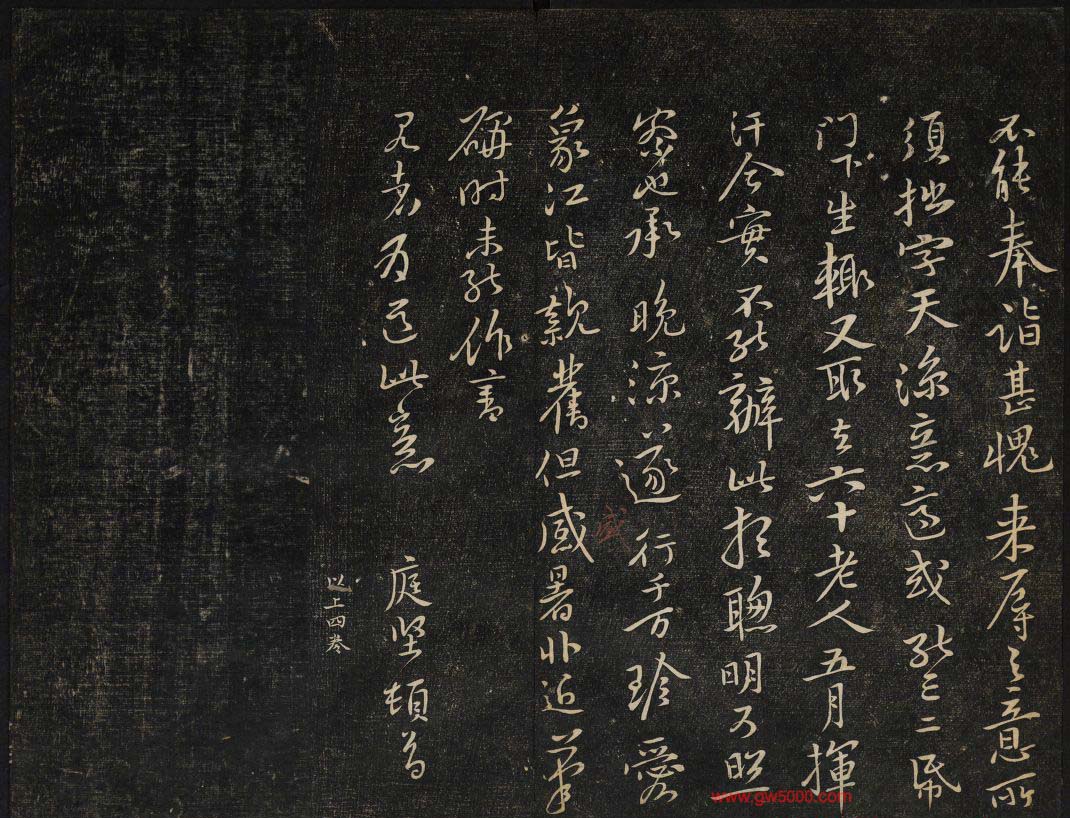 不能奉诣甚愧来辱之意所
须拙字天凉意适或能三二纸
门下生辄又取去六十老人五月挥
汗今实不能办此想聪明可照
察也承晚凉遂行千万珍爱
象江皆亲旧但盛暑非近笔
研时未能作书
见者为道此意
庭坚顿首
以上四卷
盛
www.gw5000.com